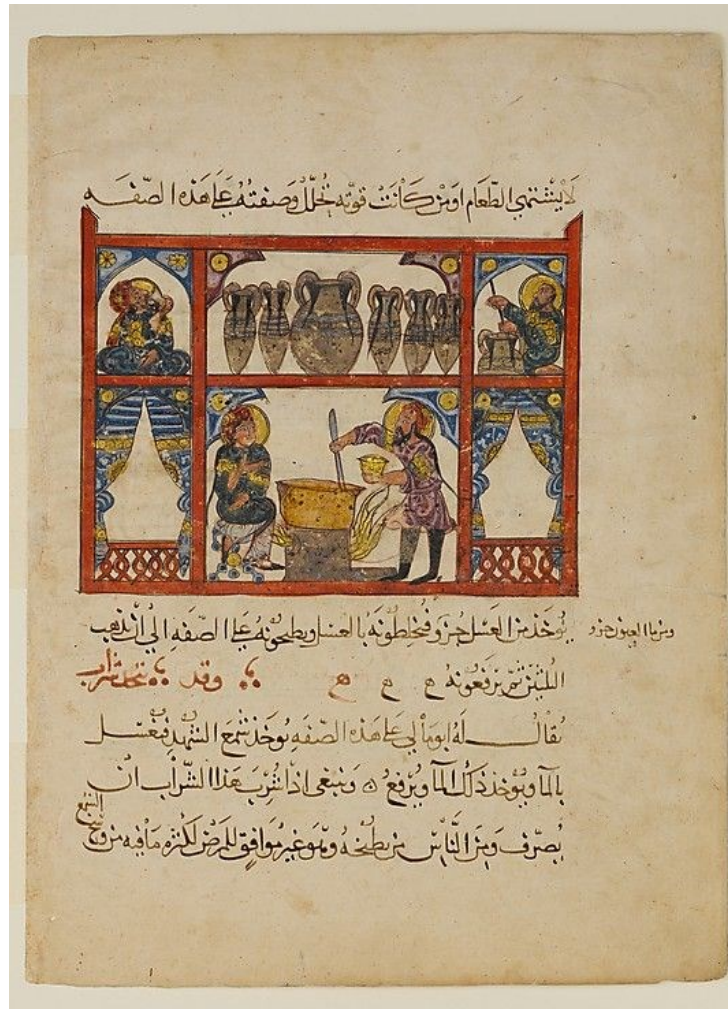 لا يشتهي الطعام او من كانت قوته تحلل وصفته على هذه الصفه
يوخذ من العسل جزو فيخلطونه بالعسل ويطبخونه على الصفه الي ان يذهب
ومن ماء العيون جزو
الثلثين ثم يرفعونه وقد يتخذ شراب
يقال له ابوماالي على هذه الصفه يوخذ شمع الشهد فيغسل
بالما ويوخذ ذلك الما ويرفع وينبغي اذا شرب هذا الشراب ان
يصرف ومن الناس من يطبخه وهو غير موافق للمرضى لكثره ما فيه من وسخ
الشمع